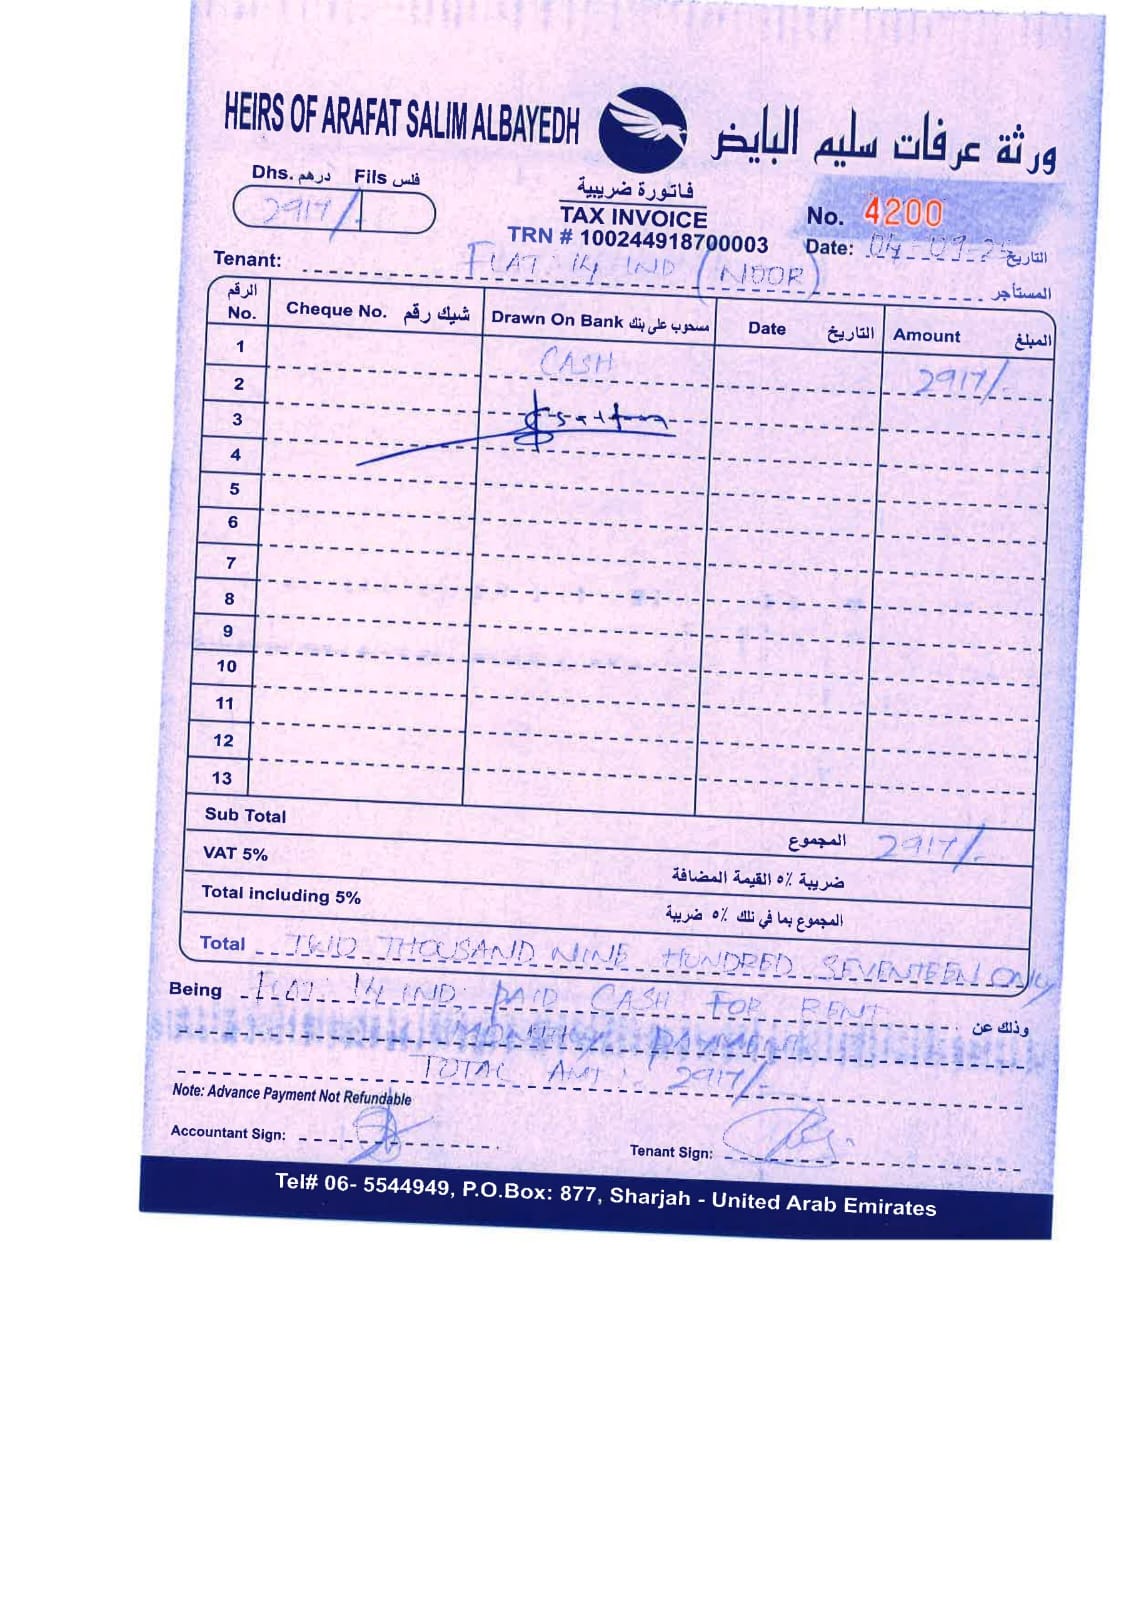 HEIRS OF ARAFAT SALIM ALBAYEDH ورثة عرفات سليم البايض
Dhs. درهم Fils فلس
2917/-
فاتورة ضريبية
TAX INVOICE
TRN # 100244918700003
No. 4200
Date: 04-09-25 التاريخ
Tenant: FLAT: 14 IND (NOOR) المستأجر
الرقم No. Cheque No. شيك رقم Drawn On Bank مسحوب على بنك Date التاريخ Amount المبلغ
1 CASH 2917/-
2
3
4
5
6
7
8
9
10
11
12
13
Sub Total المجموع 2917/-
VAT 5% ضريبة ٥٪ القيمة المضافة
Total including 5% المجموع بما في ذلك ٥٪ ضريبة
Total TWO THOUSAND NINE HUNDRED SEVENTEEN ONLY
Being FLAT: 14 IND: PAID CASH FOR RENT وذلك عن
MONTHLY PAYMENT
TOTAL AMT: 2917/-
Note: Advance Payment Not Refundable
Accountant Sign:
Tenant Sign:
Tel# 06- 5544949, P.O.Box: 877, Sharjah - United Arab Emirates